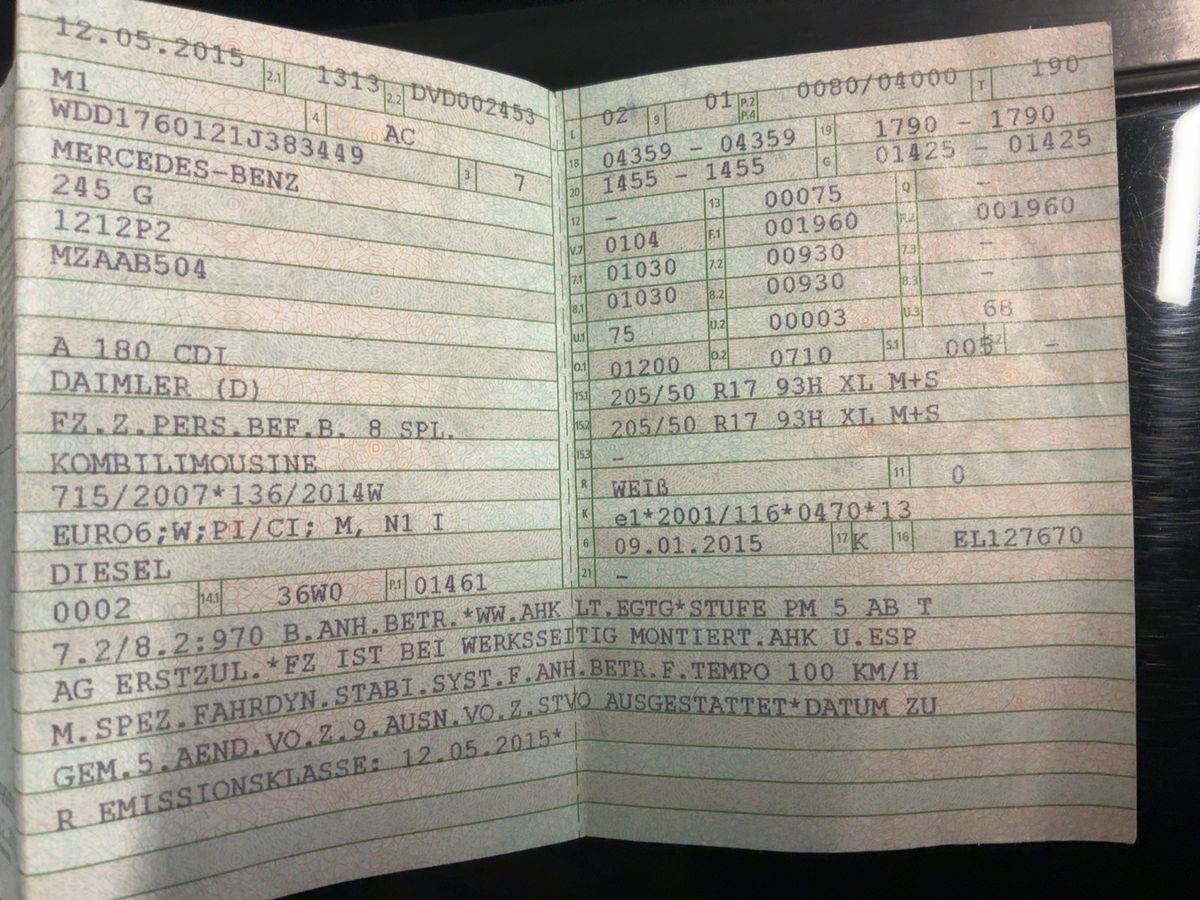 12.05.2015 2.1 1313 2.2 DVD002453
M1 4 AC
WDD1760121J383449 3 7
MERCEDES-BENZ
245 G
1212P2
MZAAB504
A 180 CDI
DAIMLER (D)
FZ.Z.PERS.BEF.B. 8 SPL.
KOMBILIMOUSINE
715/2007*136/2014W
EURO6;W;PI/CI; M, N1 I
DIESEL
0002 14.1 36W0 P.1 01461
L 02 9 01 P.2 P.4 0080/04000 T 190
18 04359 - 04359 19 1790 - 1790
20 1455 - 1455 G 01425 - 01425
12 - 13 00075 Q -
V.7 0104 F.1 001960 F.2 001960
7.1 01030 7.2 00930 7.3 -
8.1 01030 8.2 00930 8.3 -
U.1 75 U.2 00003 U.3 68
O.1 01200 O.2 0710 S.1 005 S.2 -
15.1 205/50 R17 93H XL M+S
15.2 205/50 R17 93H XL M+S
15.3 -
R WEIß 11 0
K e1*2001/116*0470*13
6 09.01.2015 17 K 16 EL127670
21 -
7.2/8.2:970 B.ANH.BETR.*WW.AHK LT.EGTG*STUFE PM 5 AB T
AG ERSTZUL.*FZ IST BEI WERKSSEITIG MONTIERT.AHK U.ESP
M.SPEZ.FAHRDYN.STABI.SYST.F.ANH.BETR.F.TEMPO 100 KM/H
GEM.5.AEND.VO.Z.9.AUSN.VO.Z.STVO AUSGESTATTET*DATUM ZU
R EMISSIONSKLASSE: 12.05.2015*